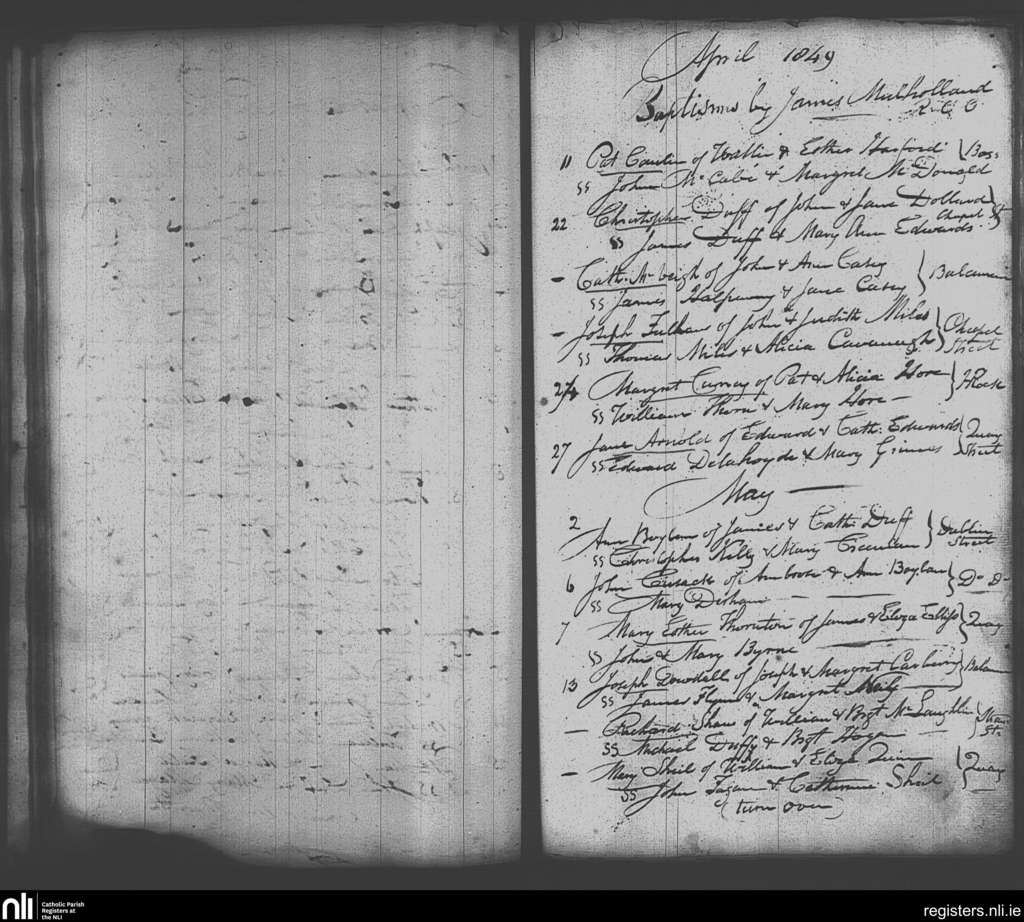 April 1849
Baptisms by James Mulholland
R. C. C
11 Pat Cantin of Wattin & Esther Harford Bos:
SS John McCabe & Margret McDonald
22 Christopher Duff of John & Jane Dolland Chapel St
SS James Duff & Mary Ann Edwards
- Cath. McVeigh of John & Ann Casey Balamain
SS James Halfpenny & Jane Casey
- Joseph Fulham of John & Judith Miles Chapel Street
SS Thomas Miles & Alicia Cavanaugh
24 Margret Curray of Pat & Alicia Hore
SS William Thorn & Mary Hore -
27 Jane Arnold of Edward & Cath: Edwards Quay Street
SS Edward Delahoyde & Mary Grimes
May
2 Ann Boylan of James & Cath: Duff Dublin Street
SS Christopher Kelly & Mary Creenan
6 John Cusack of Ambrose & Ann Boylan Do Do
SS Mary Disham
7 Mary Esther Thornton of James & Eliza Elliss Quay
SS John & Mary Byrne
13 Joseph Dowdall of Joseph & Margret Carberry Balam
SS James Flynn & Margret Neily
- Richard Shaw of William & Bgt McLaughlin Main St.
SS Michael Duffy & Bgt Hoge
- Mary Shiel of William & Eliza Quin Quay
SS John Fagan & Catherine Shiel
(turn over)
nli
Catholic Parish
Registers at
the NLI
registers.nli.ie